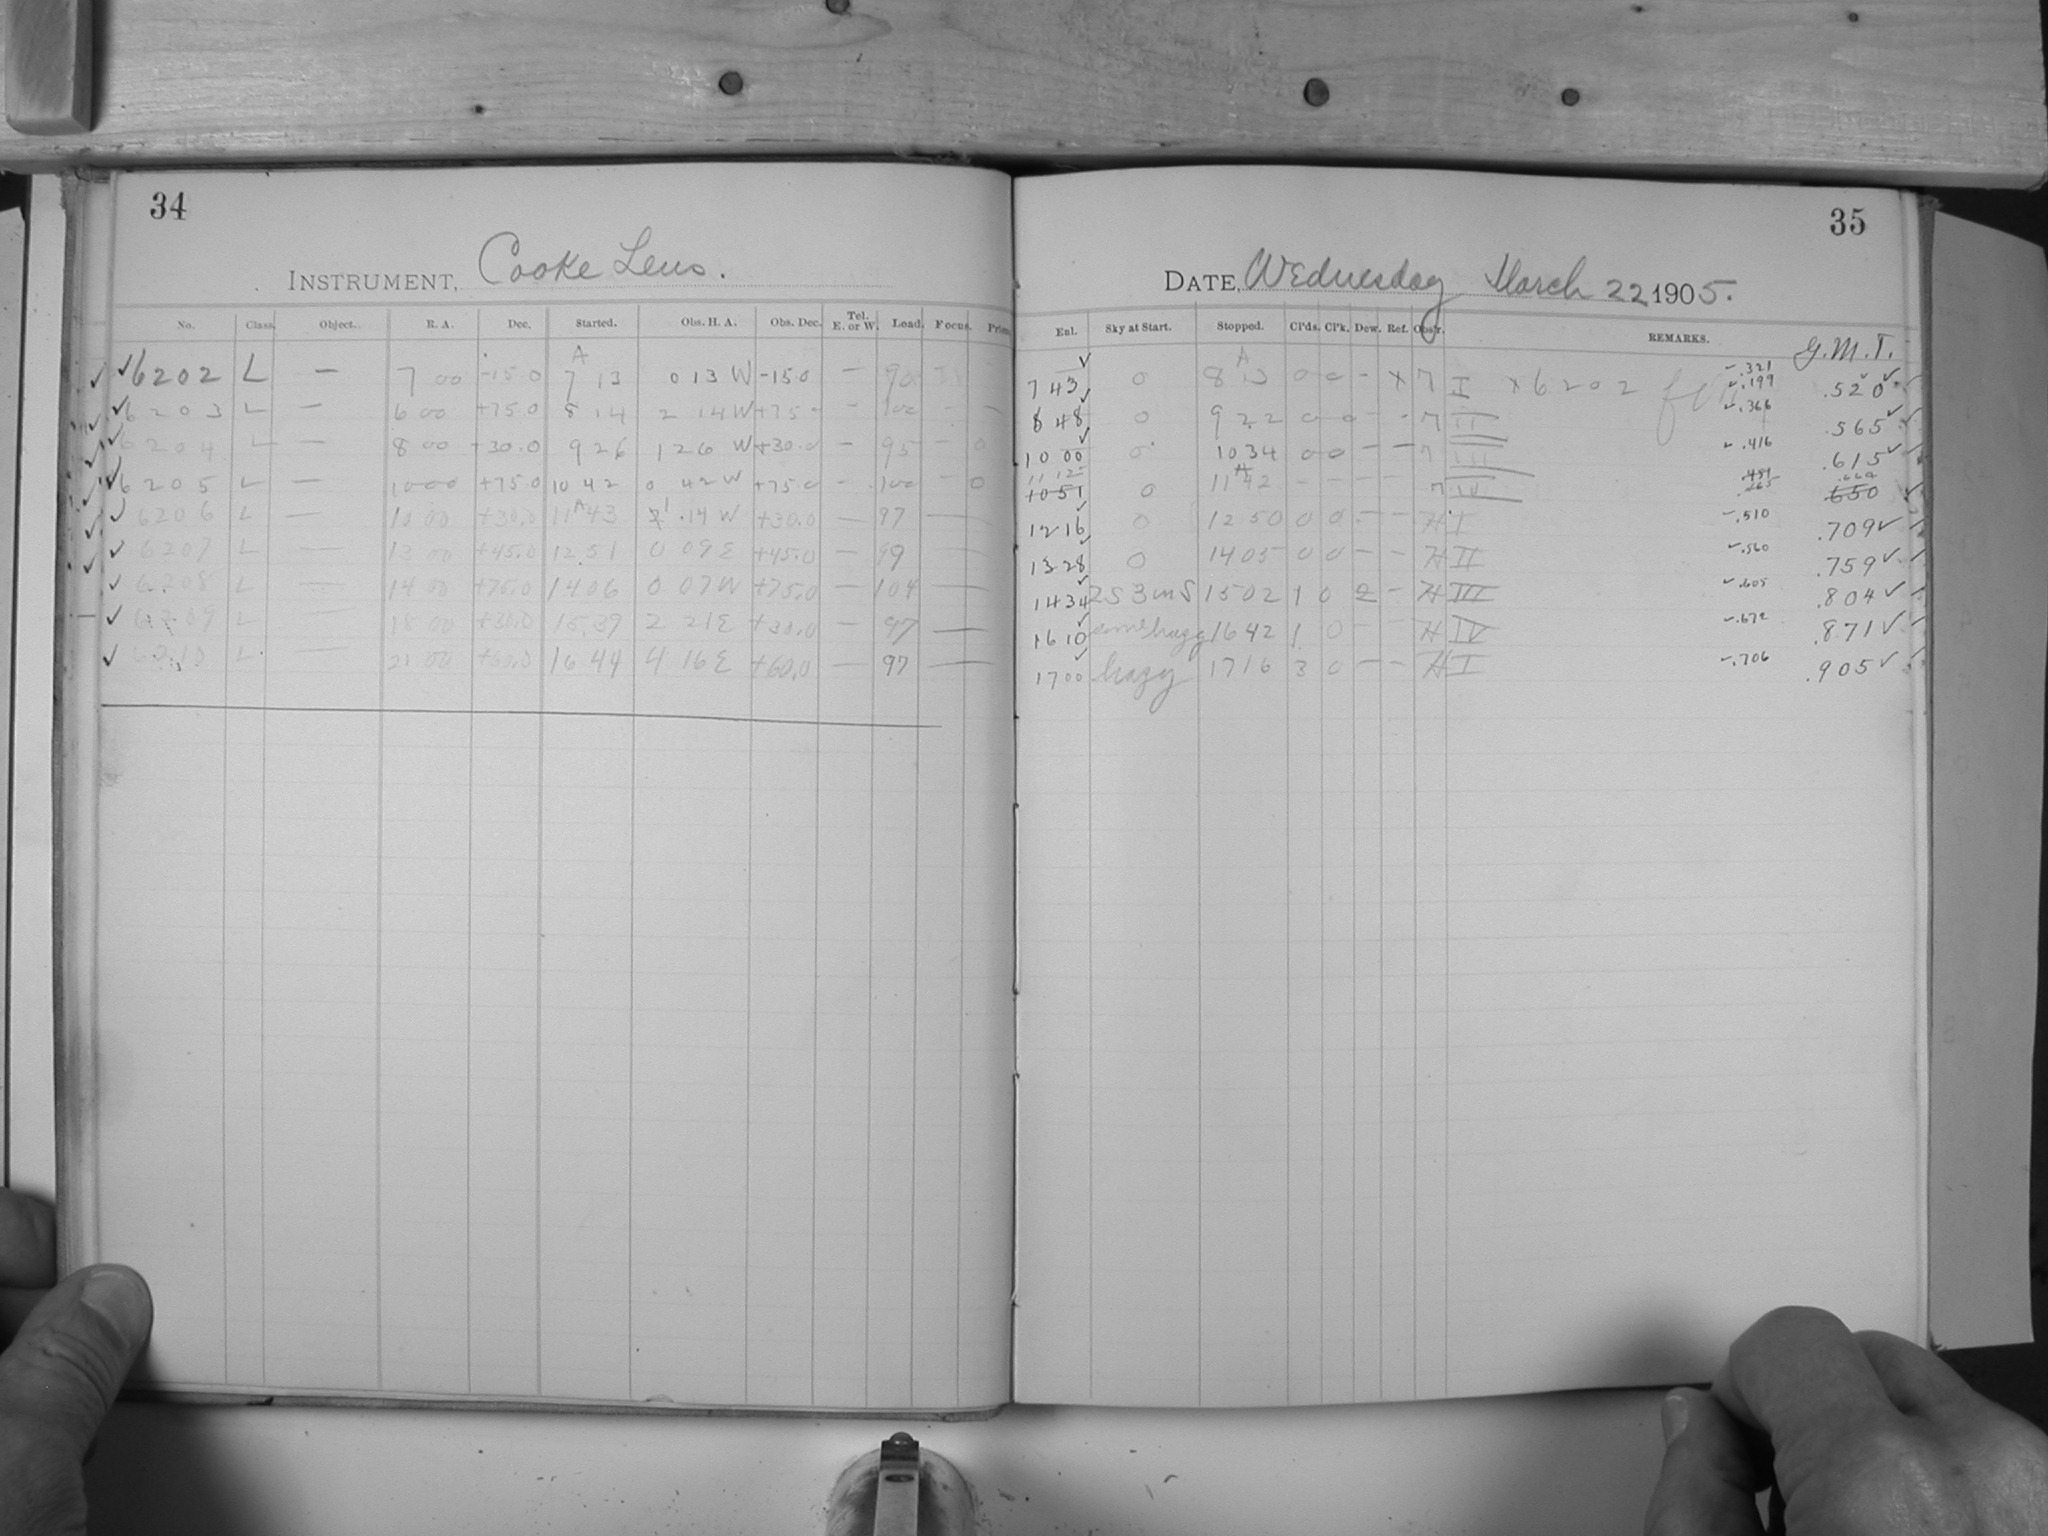 34
INSTRUMENT, Cooke Lens.
No. Class. Object. R. A. Dec. Started. Obs. H. A. Obs. Dec. Tel. E. or W. Load. Focus.
A
✓6202 L — 7 00 -15.0 7 13 0 13 W -15.0 — 90
✓6203 L — 6 00 +75.0 8 14 2 14 W +75 — — 100 —
✓6204 L — 8 00 +30.0 9 26 1 26 W +30.0 — 95 — 0
✓6205 L — 10 00 +75.0 10 42 0 42 W +75.0 — 100 — 0
✓ 6206 L — 10 00 +30.0 11 A 43 1 .14 W +30.0 — 97 —
✓ 6207 L — 13 00 +45.0 12.51 0 09 E +45.0 — 99 —
✓ 6208 L — 14 00 +75.0 14 06 0 07 W +75.0 — 104 —
✓ 6209 L — 18 00 +30.0 15.39 2 21 E +30.0 — 97 —
✓ 6210 L 21 00 +60.0 16 44 4 16 E +60.0 — 97 —
35
DATE, Wednesday March 22 1905.
Enl. Sky at Start. Stopped. Cl'ds. Cl'k. Dew. Ref. Obs'r. REMARKS.
G.M.T.
✓ A .321
7 43 0 8 13 0 0 - x 7 I x6202 .199 .520✓
8 48 0 9 22 0 0 - - 7 II .366 .565✓
10 00 0 10 34 0 0 — — 7 III .416 .615✓
11 12
10 51 0 11 A 42 - - - - 7 IV 650
12 16 0 12 50 0 0 - - H I .510 .709✓
13 28 0 14 05 0 0 - - H II .560 .759✓
14 34 2S 3mS 15 02 1 0 2 - H III .605 .804✓
16 10 16 42 1 0 - - H IV .672 .871✓
17 00 hazy 17 16 3 0 - - H I .706 .905✓